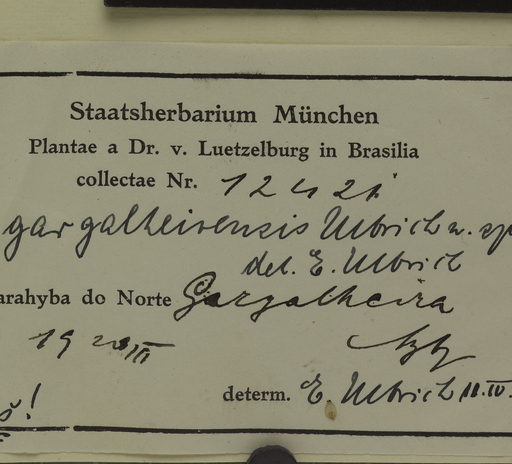 Staatsherbarium München
Plantae a Dr. v. Luetzelburg in Brasilia
collectae Nr. 12421
gargalheirensis Ulbrich n. sp
det. E. Ulbrich
arahyba do Norte Gargalheira
19 III
determ. E. Ulbrich 11.IV.